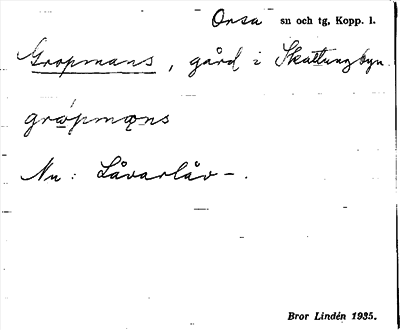 Orsa sn och tg, Kopp. l.
Gropmans, gård i Skattungbyn.
gro̲pmans
Nu: Låvarlåv-.
Bror Lindén 1935.